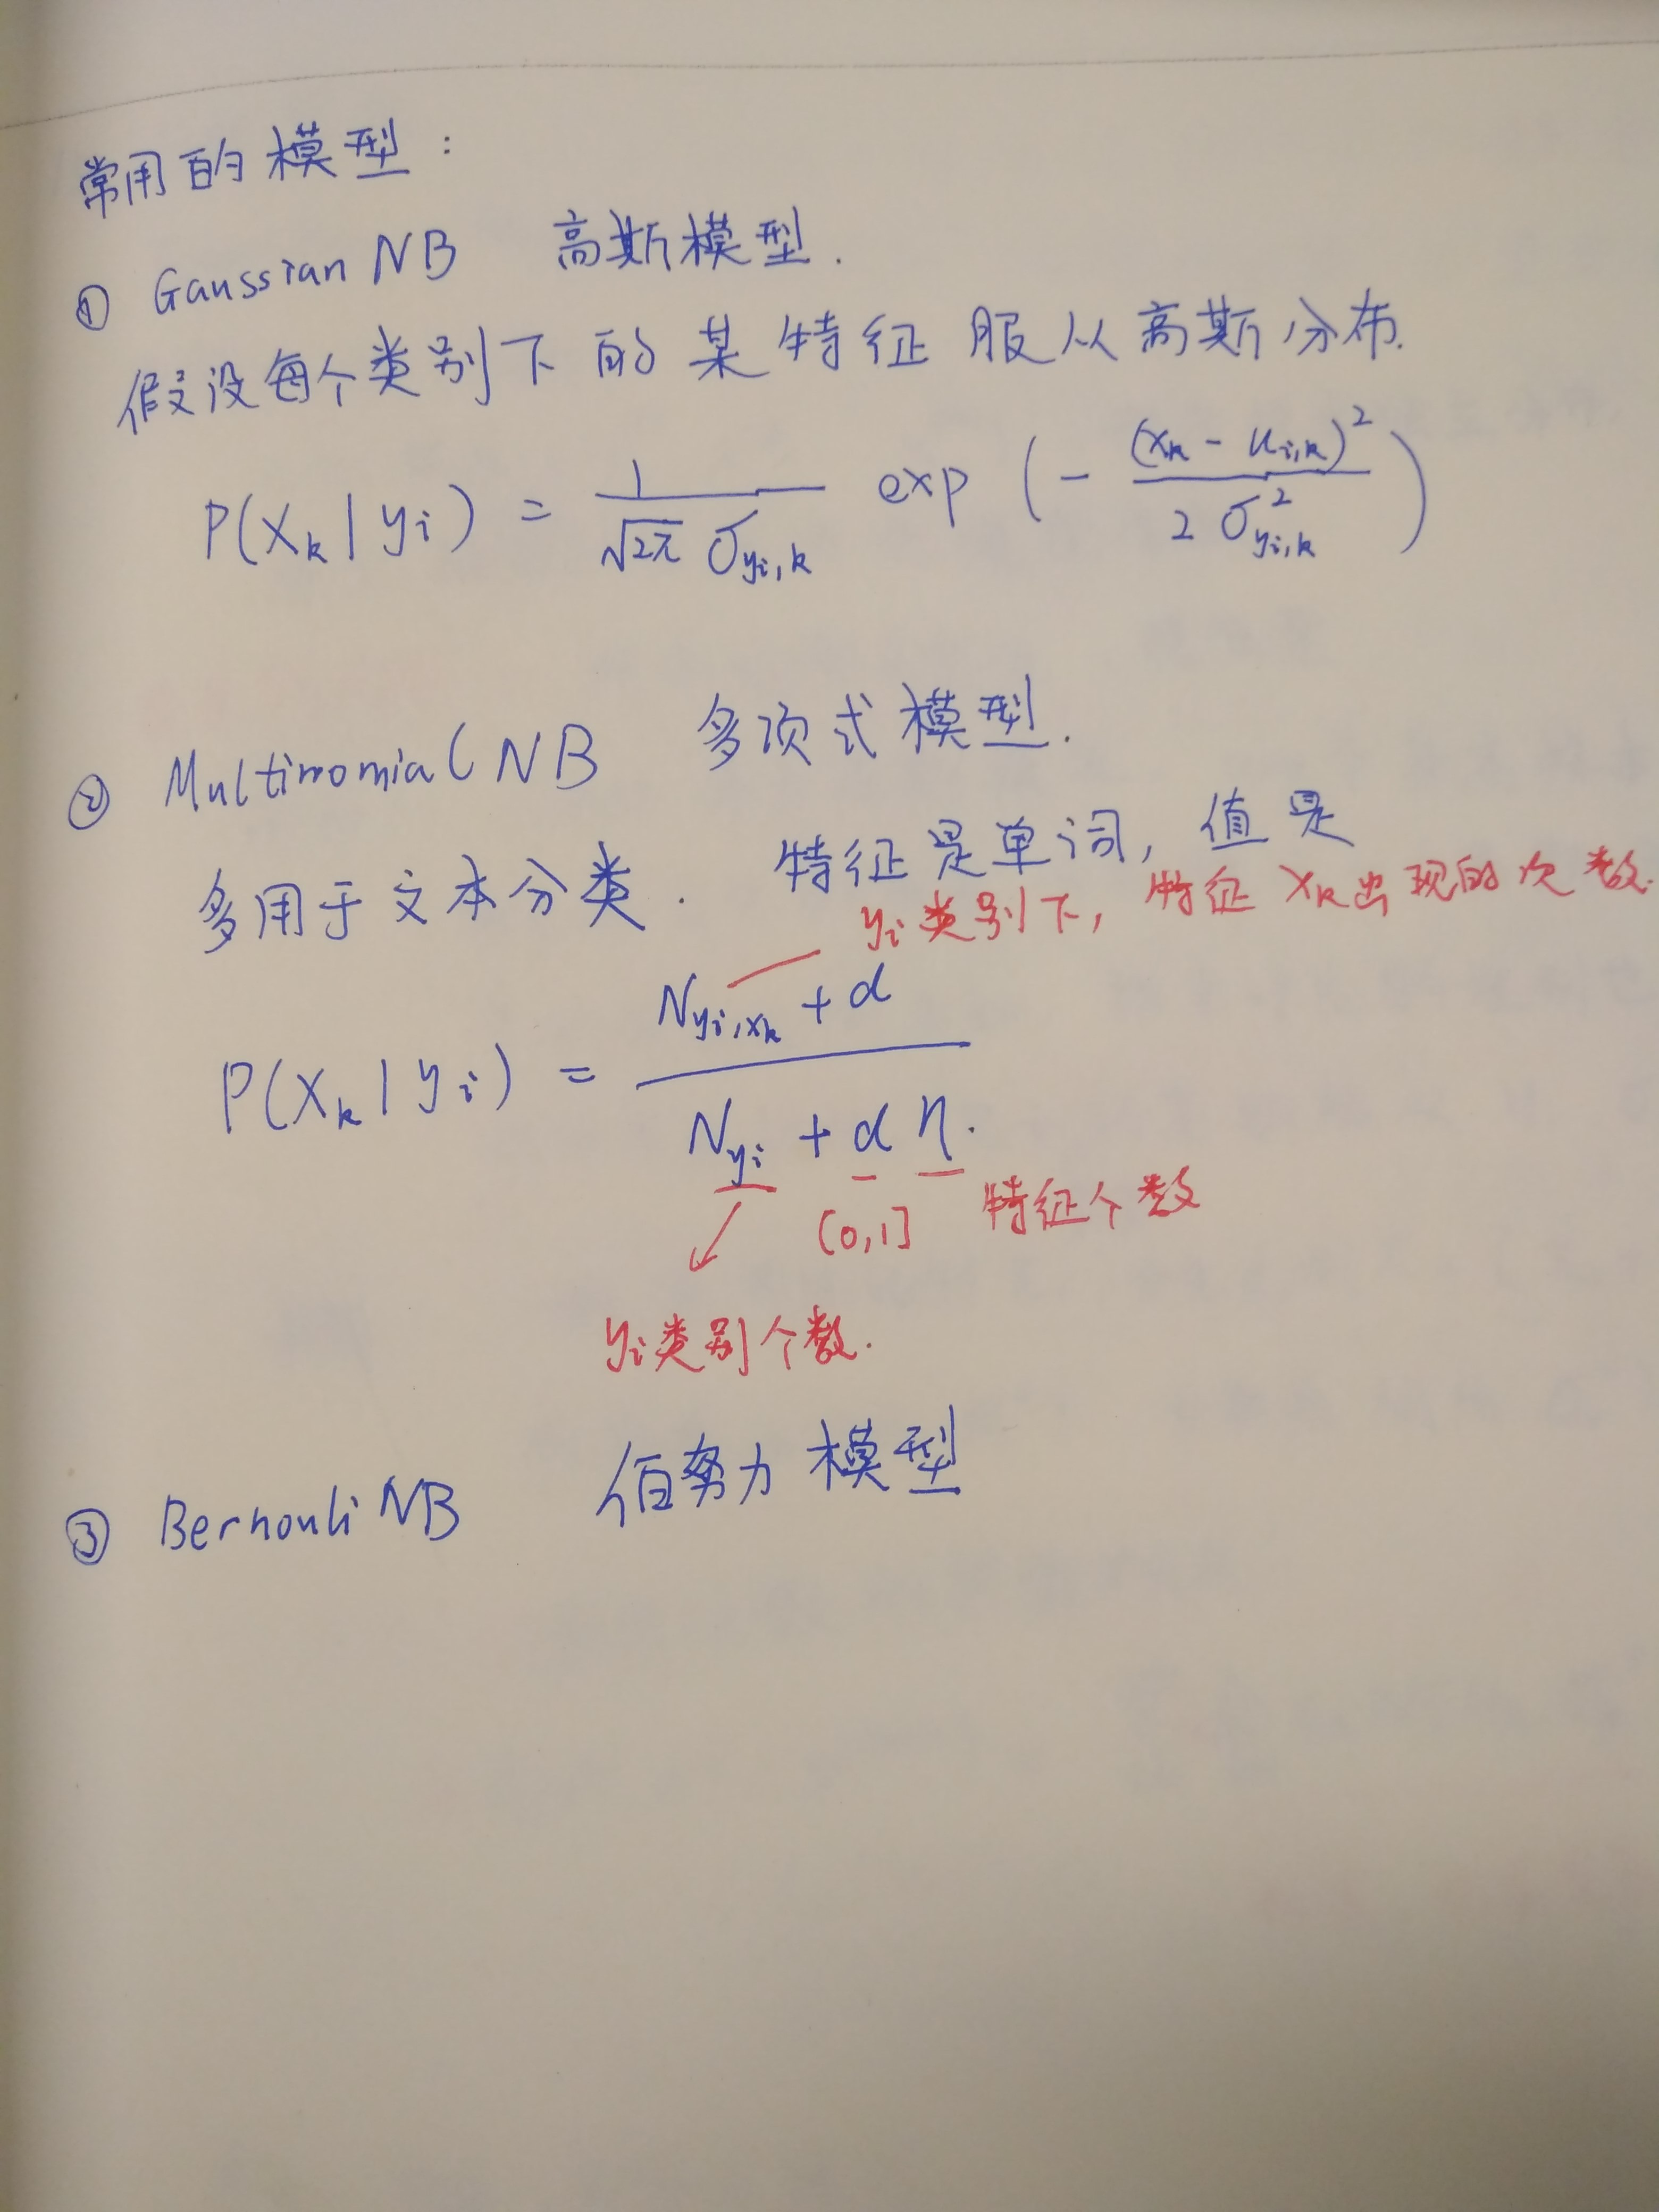 常用的模型:
① Gaussian NB 高斯模型.
假设每个类别下的某特征服从高斯分布.
P(x_k | y_i) = 1 / (√2π σ_{yi,k}) exp (- (x_k - u_{i,k})² / 2σ²_{yi,k})
② Multinomial NB 多项式模型.
多用于文本分类. 特征是单词, 值是
y_i类别下, 特征 x_k出现的次数.
P(x_k | y_i) = (N_{yi,xk} + α) / (N_{yi} + α n.)
(0,1] 特征个数
y_i类别个数.
③ Bernouli NB 伯努力模型